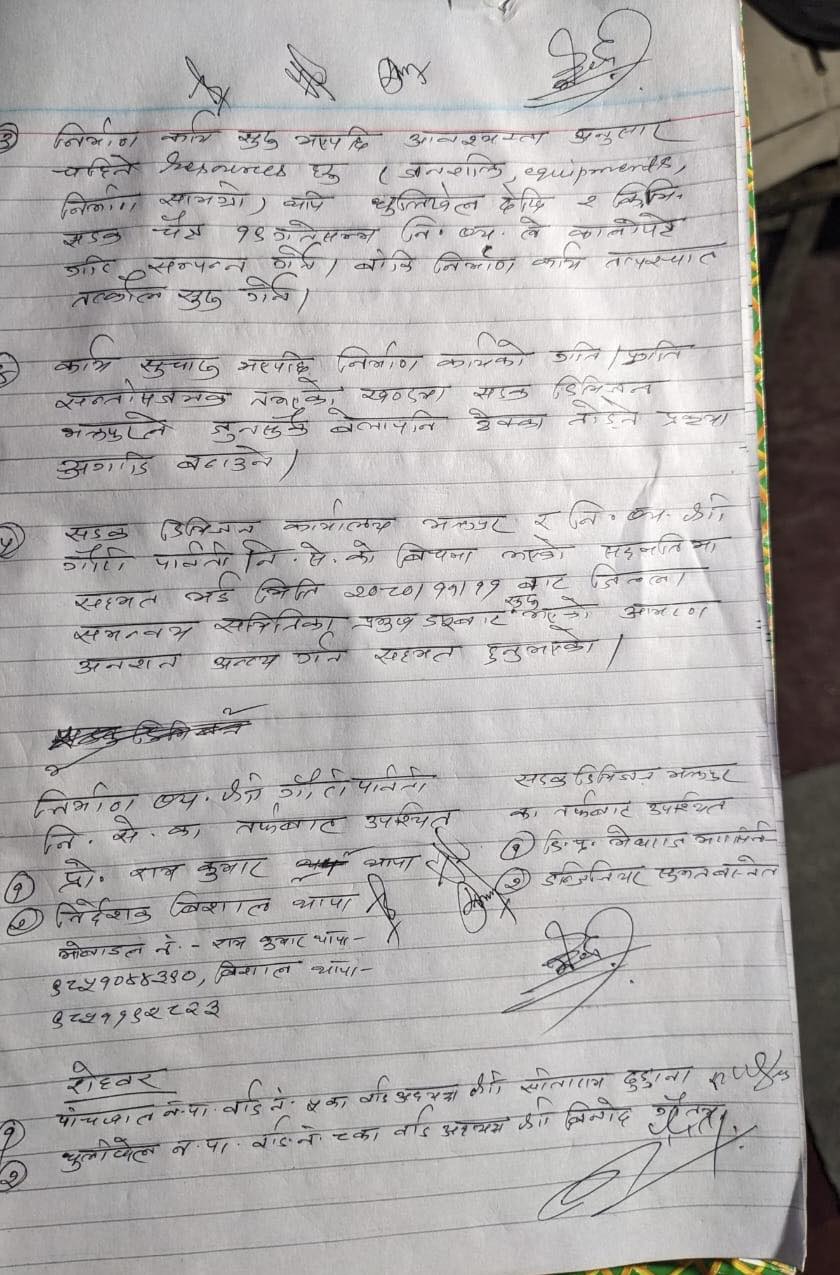 ३ निर्माण कार्य सुरु भएपछि आवश्यकता अनुसार
चाहिने Resources हरु (जनशक्ति, equipments,
निर्माण सामग्री) थपि धुलिखेल देखि २ कि.मि.
सडक चैत्र १९ गतेसम्म नि. व्य. ले कालोपत्रे
गरि सम्पन्न गर्ने। बाँकि निर्माण कार्य तत्पश्चात
तत्काल सुरु गर्ने।
कार्य सुचारु भएपछि निर्माण कार्यको गति/प्रगति
सन्तोषजनक नभएको खण्डमा सडक डिभिजन
भक्तपुरले जुनसुकै बेलापनि ठेक्का तोड्ने प्रकृया
अगाडि बढाउने।
५ सडक डिभिजन कार्यालय भक्तपुर र नि. व्य. श्री
गौरी पार्वती नि. से. को बिचमा भएको सहमतिमा
सहमत भई मिति २०८०/११/११ बाट जिल्ला
समन्वय समितिका प्रमुख बाट सुरु भएको आमरण
अनशन अन्त्य गर्न सहमत हुनुभएको।
निर्माण व्य. श्री गौरी पार्वती
नि. से. का तर्फबाट उपस्थित
१ प्रो. राम कुमार थापा
२ निर्देशक बिशाल थापा
मोबाइल नं. - राम कुमार थापा-
बिशाल थापा-
सडक डिभिजन भक्तपुर
का तर्फबाट उपस्थित
१ डि. प्र.
२ इन्जिनियर
रोहवर
१ पांचखाल न.पा. वडा नं. का वडा अध्यक्ष श्री सीताराम
२ धुलिखेल न. पा. वडा नं. ८ का वडा अध्यक्ष श्री बिनोद